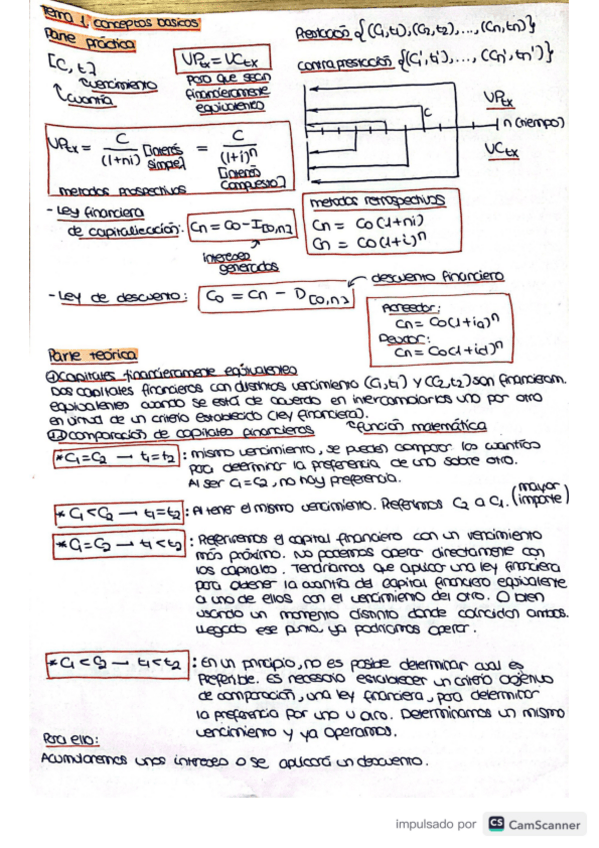 Tema 1, conceptos basicos
Parte práctica
Prestación {(C1,t1),(C2,t2),...,(Cn,tn)}
[C, t]
vencimiento
cuantía
VPtx = VCtx
Para que sean
financieramente
equivalentes
contraprestación {(C1',t1'),...,(Cn',tn')}
C
VPtx
n (tiempo)
VCtx
VPtx = C/(1+ni) [interés simple] = C/(1+i)^n [interés compuesto]
metodos prospectivos
metodos retrospectivos
Cn = C0(1+ni)
Cn = C0(1+i)^n
- Ley financiera
de capitalización: Cn = C0 - I[0,n]
intereses
generados
descuento financiero
- Ley de descuento: C0 = Cn - D[0,n]
Acreedor:
Cn = C0(1+ia)^n
Deudor:
Cn = C0(1+id)^n
Parte teórica
① capitales financieramente equivalentes
Dos capitales financieros con distintos vencimiento (C1,t1) y (C2,t2) son financieram.
equivalentes cuando se está de acuerdo en intercambiarlos uno por otro
en virtud de un criterio establecido (ley financiera).
función matemática
comparación de capitales financieros
* C1=C2 → t1=t2 : mismo vencimiento, se pueden comparar las cuantías
para determinar la preferencia de uno sobre otro.
Al ser C1=C2, no hay preferencia.
* C1<C2 → t1=t2 : Al tener el mismo vencimiento. Preferimos C2 a C1. (mayor importe)
* C1=C2 → t1<t2 : Preferiremos el capital financiero con un vencimiento
más próximo. No podemos operar directamente con
los capitales. Tendríamos que aplicar una ley financiera
para obtener la cuantía del capital financiero equivalente
a uno de ellos con el vencimiento del otro. O bien
usando un momento distinto donde coincidan ambos.
Llegado ese punto, ya podríamos operar.
* C1<C2 → t1<t2 : En un principio, no es posible determinar cual es
preferible. Es necesario establecer un criterio objetivo
de comparación, una ley financiera, para determinar
la preferencia por uno u otro. Determinamos un mismo
vencimiento y ya operamos.
Para ello:
Acumularemos unos intereses o se aplicará un descuento.
impulsado por CS CamScanner